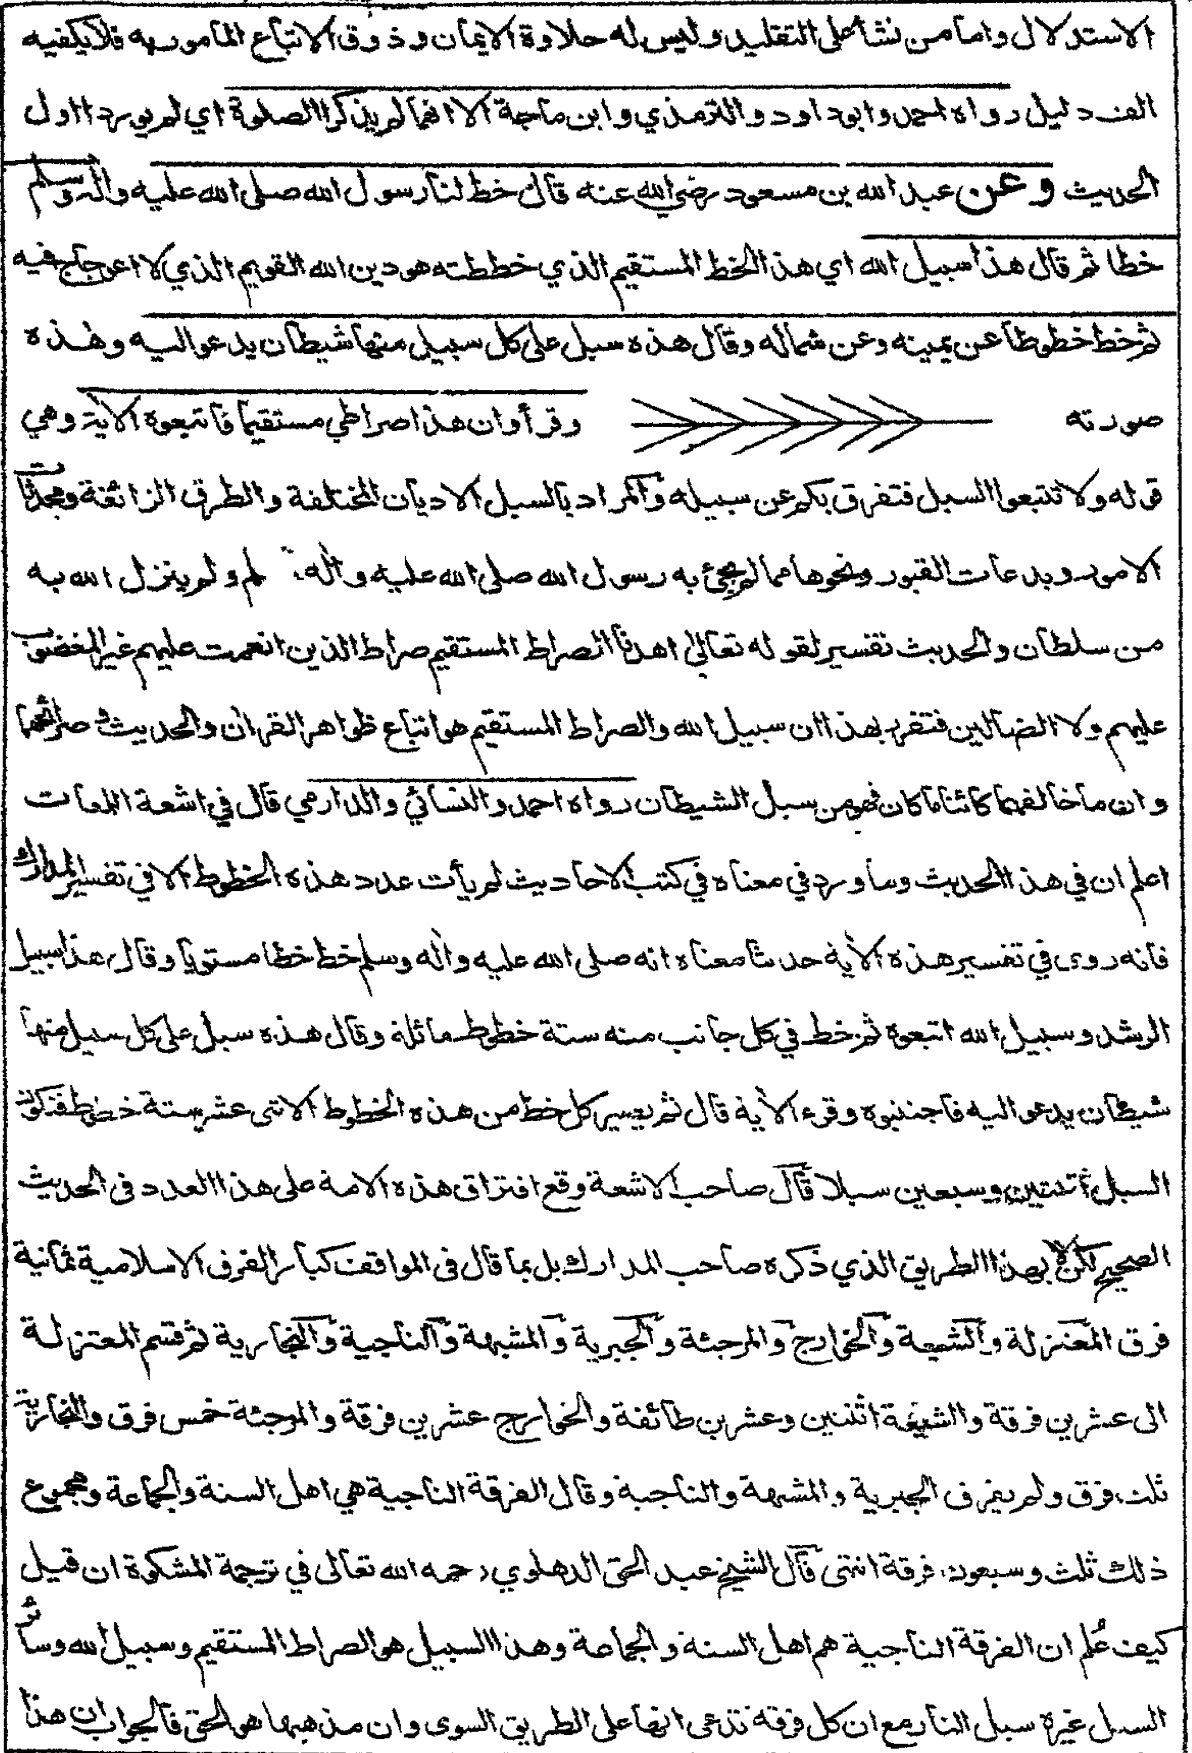 الاستدلال واما من نشأ على التقليد وليس له حلاوة الايمان وذوق الاتباع المامور به فلا يكفيه
الف دليل رواه احمد وابوداود والترمذي وابن ماجة الا انهما لم يذكرا الصلوة اي لم يوردا اول
الحديث وعن عبد الله بن مسعود رضي الله عنه قال خط لنا رسول الله صلى الله عليه واله وسلم
خطا ثم قال هذا سبيل الله اي هذا الخط المستقيم الذي خططته هو دين الله القويم الذي لا اعوجاج فيه
ثم خط خطوطا عن يمينه وعن شماله وقال هذه سبل على كل سبيل منها شيطان يدعو اليه وهذه
صورته وقرأ وان هذا صراطي مستقيما فاتبعوه الاية وهي
قوله ولا تتبعوا السبل فتفرق بكم عن سبيله والمراد بالسبل الاديان المختلفة والطرق الزائغة ومحدثات
الامور وبدعات القبور ونحوها مما لم يجئ به رسول الله صلى الله عليه واله ولم ينزل الله به
من سلطان والحديث تفسير لقوله تعالى اهدنا الصراط المستقيم صراط الذين انعمت عليهم غير المغضوب
عليهم ولا الضالين فتقرر بهذا ان سبيل الله والصراط المستقيم هو اتباع ظواهر القران والحديث وصرائحهما
وان ما خالفهما كائنا ما كان فهو من سبل الشيطان رواه احمد والنسائي والدارمي قال في اشعة اللمعات
اعلم ان في هذا الحديث وما ورد في معناه في كتب الاحاديث لم يأت عدد هذه الخطوط الا في تفسير المدارك
فانه روى في تفسير هذه الاية حدثنا معناه انه صلى الله عليه واله وسلم خط خطا مستويا وقال هذا سبيل
الرشد وسبيل الله اتبعوه ثم خط في كل جانب منه ستة خطوط مائلة وقال هذه سبل على كل سبيل منها
شيطان يدعو اليه فاجتنبوه وقرء الاية قال ثم يصير كل خط من هذه الخطوط الاثنى عشر ستة خطوط فتكون
السبل اثنتين وسبعين سبيلا قال صاحب الاشعة وقع افتراق هذه الامة على هذا العدد في الحديث
الصحيح لكن لا بهذا الطريق الذي ذكره صاحب المدارك بل بما قال في المواقف كبار الفرق الاسلامية ثمانية
فرق المعتزلة والشيعة والخوارج والمرجئة والجبرية والمشبهة والناجية والنجارية ثم قسم المعتزلة
الى عشرين فرقة والشيعة اثنتين وعشرين طائفة والخوارج عشرين فرقة والمرجئة خمس فرق والنجارية
ثلث فرق ولم يفرق الجبرية والمشبهة والناجية وقال الفرقة الناجية هي اهل السنة والجماعة ومجموع
ذلك ثلث وسبعون فرقة انتهى قال الشيخ عبد الحق الدهلوي رحمه الله تعالى في ترجمة المشكوة ان قيل
كيف عُلم ان الفرقة الناجية هم اهل السنة والجماعة وهذا السبيل هو الصراط المستقيم وسبيل الله وسائر
السبل غيره سبل النار مع ان كل فرقة تدعى انها على الطريق السوى وان مذهبها هو الحق فالجواب ان هذا